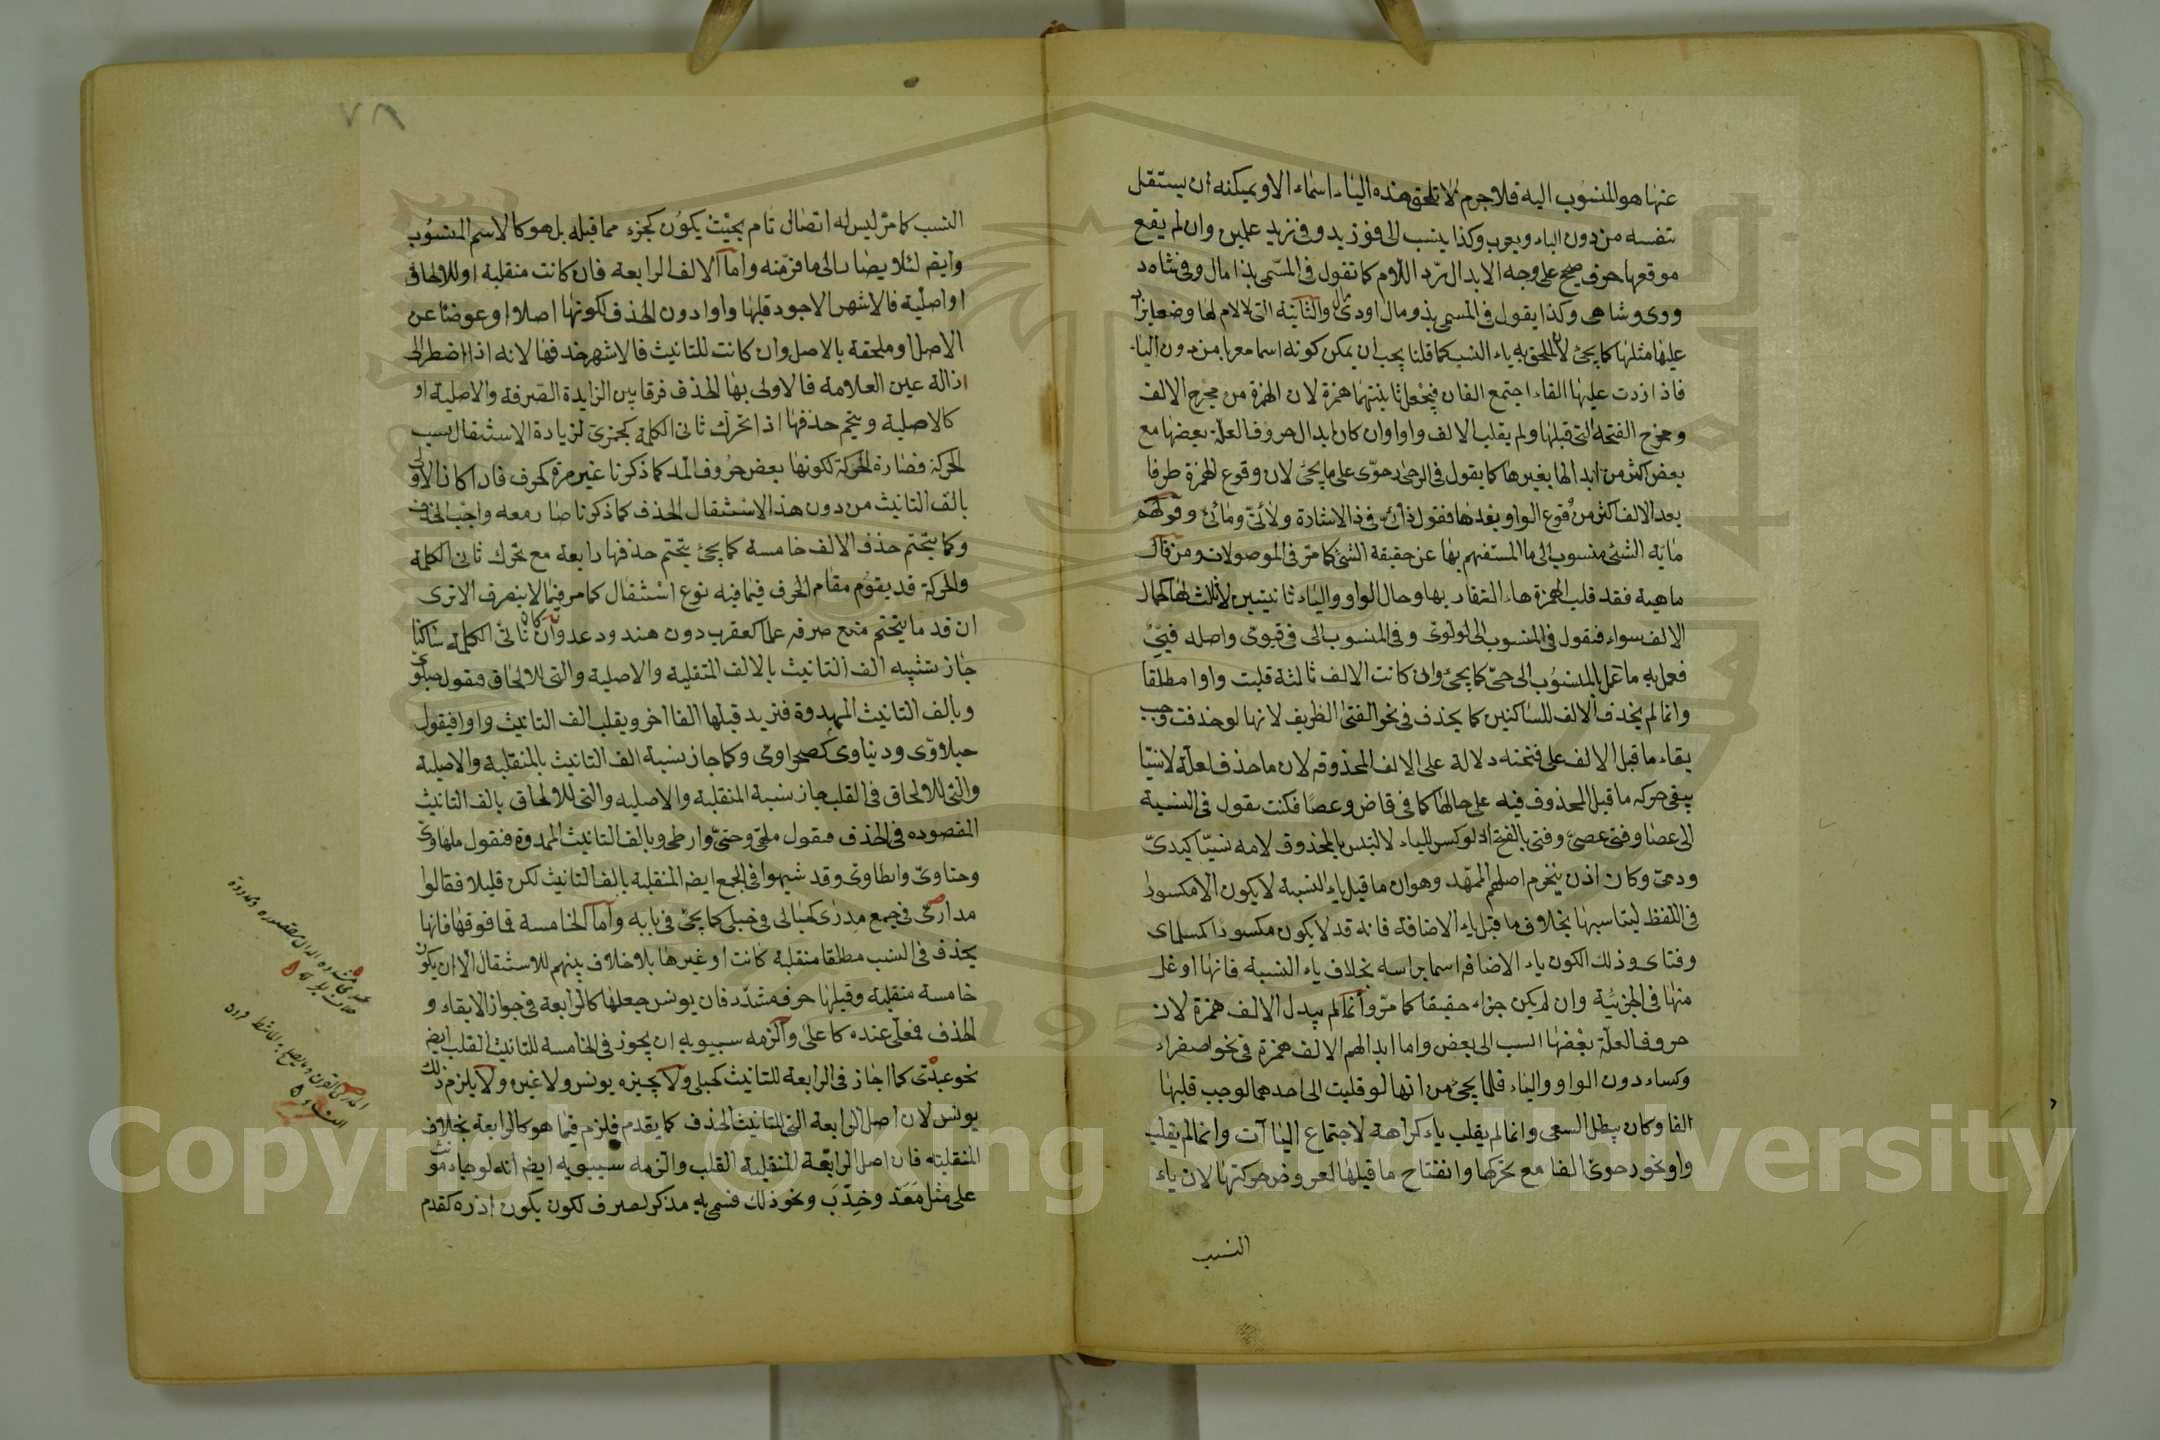 عنها هو المنسوب اليه فلا جرم لا تلحق هذه الياء اسماء الا ويمكنه ان يستقل
بنفسه من دون الياء ويعرب وكذا ينسب الى فو زيد وفي زيد علمين وان لم يقع
موقعها حرف صحيح على وجه الابدال برد اللام كما تقول في المسمى بذا مال وفي شاه
ووى وشاهى وكذا يقول في المسمى بذو مال اودى والثانية التى لا لام لها وضعا يزاد
عليها مثلها كما يجئ لان الملحق به ياء النسب كما قلنا يجب ان يمكن كونه اسما معربا من دون الياء
فاذا زدت عليها الفاء اجتمع الفان فيجعل ثانيتهما همزة لان الهمزة من مخرج الالف
ومخرج الفتحة التى قبلها ولم يقلب الالف واوا وان كان ابدال حروف العلة بعضها مع
بعض اكثر من ابدالها بغيرها كما يقول في الرحى رحوى على ما يجئ لان وقوع الهمزة طرفا
بعد الالف اكثر من وقوع الواو بعدها فقول ذائى في ذا الاشارة ولائى ومائى وقولهم
مائية الشئ منسوب الى ما المستفهم بها عن حقيقة الشئ كما مر في الموصولات ومن قال
ماهية فقد قلب الهمزة هاء لتقاربهما وحال الواو والياء ثانيتين لا ثالث لهما كحال
الالف سواء فنقول في المنسوب الى لو لووى وفي المنسوب الى في فيوى واصله فيى
فعل به ما عمل بالمنسوب الى حى كما يجئ وان كانت الالف ثالثة قلبت واوا مطلقا
وانما لم يحذف الالف للساكنين كما يحذف في نحو الفتى الظريف لانها لو حذفت وجب
بقاء ما قبل الالف على فتحته دلالة على الالف المحذوفة لان ما حذف لعلة لا نسيا
يبقى حركة ما قبل المحذوف فيه على حالها كما في قاض وعصا فكنت تقول في النسبة
الى عصا وفتى عصى وفتى بالفتح اذ لو كسر للياء لالتبس بالمحذوف لامه نسيا كيدى
ودمى وكان اذن ينخرم اصلهم الممهد وهو ان ما قبل ياء النسبة لا يكون الا مكسورا
في اللفظ ليناسبها بخلاف ما قبل ياء الاضافة فانه قد لا يكون مكسورا كمسلماى
وفتاى وذلك لكون ياء الاضافة اسما براسه بخلاف ياء النسبة فانها اوغل
منها في الجزئية وان لم يكن جزاء حقيقا كما مر وانما لم يبدل الالف همزة لان
حروف العلة بعضها انسب الى بعض واما ابدالهم الالف همزة في نحو صفراء
وكساء دون الواو والياء فلما يجئ من انها لو قلبت الى احدهما لوجب قلبها
الفا وكان يبطل السعى وانما لم يقلب ياء كراهة لاجتماع الياآت وانما لم يقلب
واو نحو رحوى الفا مع تحركها وانفتاح ما قبلها لعروض حركتها لان ياء
النسب
٧٨
النسب كما مر ليس له اتصال تام بحيث يكون كجزء مما قبله بل هو كالاسم المنسوب
وايضا لئلا يصار الى ما فر منه واما الالف الرابعة فان كانت منقلبة او للالحاق
او اصلية فالاشهر الاجود قلبها واوا دون الحذف لكونها اصلا او عوضا عن
الاصل او ملحقة بالاصل وان كانت للتانيث فالاشهر حذفها لانه اذا اضطر الى
ازالة عين العلامة فالاولى بها الحذف فرقا بين الزايدة الصرفة والاصلية او
كالاصلية ويتحتم حذفها اذا تحرك ثانى الكلمة كجمزى لزيادة الاستثقال بسبب
الحركة فصارة الحركة لكونها بعض حروف المد كما ذكرنا غير مرة كحرف فاذا كان الاولى
بالف التانيث من دون هذا الاستثقال الحذف كما ذكرنا صارمعه واجب الحذف
وكما يتحتم حذف الالف خامسة كما يجئ يتحتم حذفها رابعة مع تحرك ثانى الكلمة
والحركة قد يقوم مقام الحرف فيما فيه نوع استثقال كما مر فيما لا ينصرف الا ترى
ان قدما يتحتم منع صرفه علما كعقرب دون هند ودعد وان كان ثانى الكلمة ساكنا
جاز تشبيه الف التانيث بالالف المنقلبة والاصلية والتى للالحاق فيقول حبلوى
وبالف التانيث الممدوة فنزيد قبلها الفا اخر ويقلب الف التانيث واوا فيقول
حبلاوى ودنياوى كصحراوى وكما جاز نسبة الف التانيث بالمنقلبة والاصلية
والتى للالحاق في القلب جاز نسبة المنقلبة والاصلية والتى للالحاق بالف التانيث
المقصوده في الحذف فيقول ملهى وحتى وارطى وبالف التانيث الممدوة فنقول ملهاوى
وحتاوى وارطاوى وقد شبهوا في الجمع ايضا المنقلبة بالف التانيث لكن قليلا فقالوا
مدارى في جمع مدرى كحبالى في حبلى كما يجئ في بابه واما الخامسة فما فوقها فانها
يحذف في النسب مطلقا منقلبة كانت او غيرها بلا خلاف بينهم للاستثقال الا ان يكون
خامسة منقلبة وقبلها حرف مشدد فان يونس جعلها كالرابعة في جواز الابقاء و
الحذف فمعلى عنده كاعلى والزمه سيبويه ان يجوز في الخامسة للتانيث القلب ايضا
نحو عبدى كما اجاز في الرابعة للتانيث كحبلى ولا يجيزه يونس ولا غيره ولا يلزم ذلك
يونس لان اصل الرابعة التى للتانيث الحذف كما يقدم فلزم فيما هو كالرابعة بخلاف
المنقلبة فان اصل الرابعة المنقلبة القلب والزمه سيبويه ايضا انه لو جاء مؤنث
على مثل معد وخدب ونحو ذلك فسمى به مذكر لصرف لكون يكون اذ ره كقدم